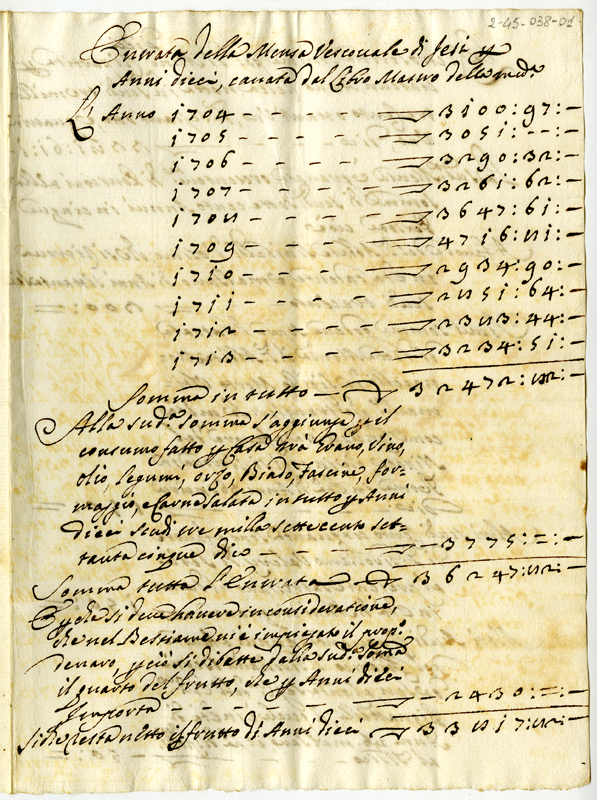 2-45-038-01
Entrata della Mensa Vescovale di Jesi p
Anni dieci, cavata dal Libro Mastro della med.a
L'Anno 1704 - - - - - 3100:97:-
1705 - - - - - 3051:--:-
1706 - - - - - 3290:32:-
1707 - - - - - 3261:62:-
1708 - - - - - 3647:61:-
1709 - - - - - 4716:81:-
1710 - - - - - 2934:90:-
1711 - - - - - 2851:64:-
1712 - - - - - 2383:44:-
1713 - - - - - 3234:51:-
Somma in tutto - 32472:82:-
Alla sud.a somma s'aggiunge il
consumo fatto p Casa trà Grano, Vino,
olio, legumi, orzo, Biado, fascine, for=
maggio, e Carne salata in tutto p Anni
dieci scudi tre milla settecento set=
tanta cinque dico - - - - 3775:=:-
Somma tutta l'Entrata - 36247:82:-
E p che si deve havere in consideratione,
che nel Bestiame vi è impiegato il prop.o
denaro, p ciò si dibatte dalla sud.a Somma
il quarto del frutto, che p Anni dieci
importa - - - - - - 2430:=:-
Siche resta netto il frutto di Anni dieci 33817:82:-